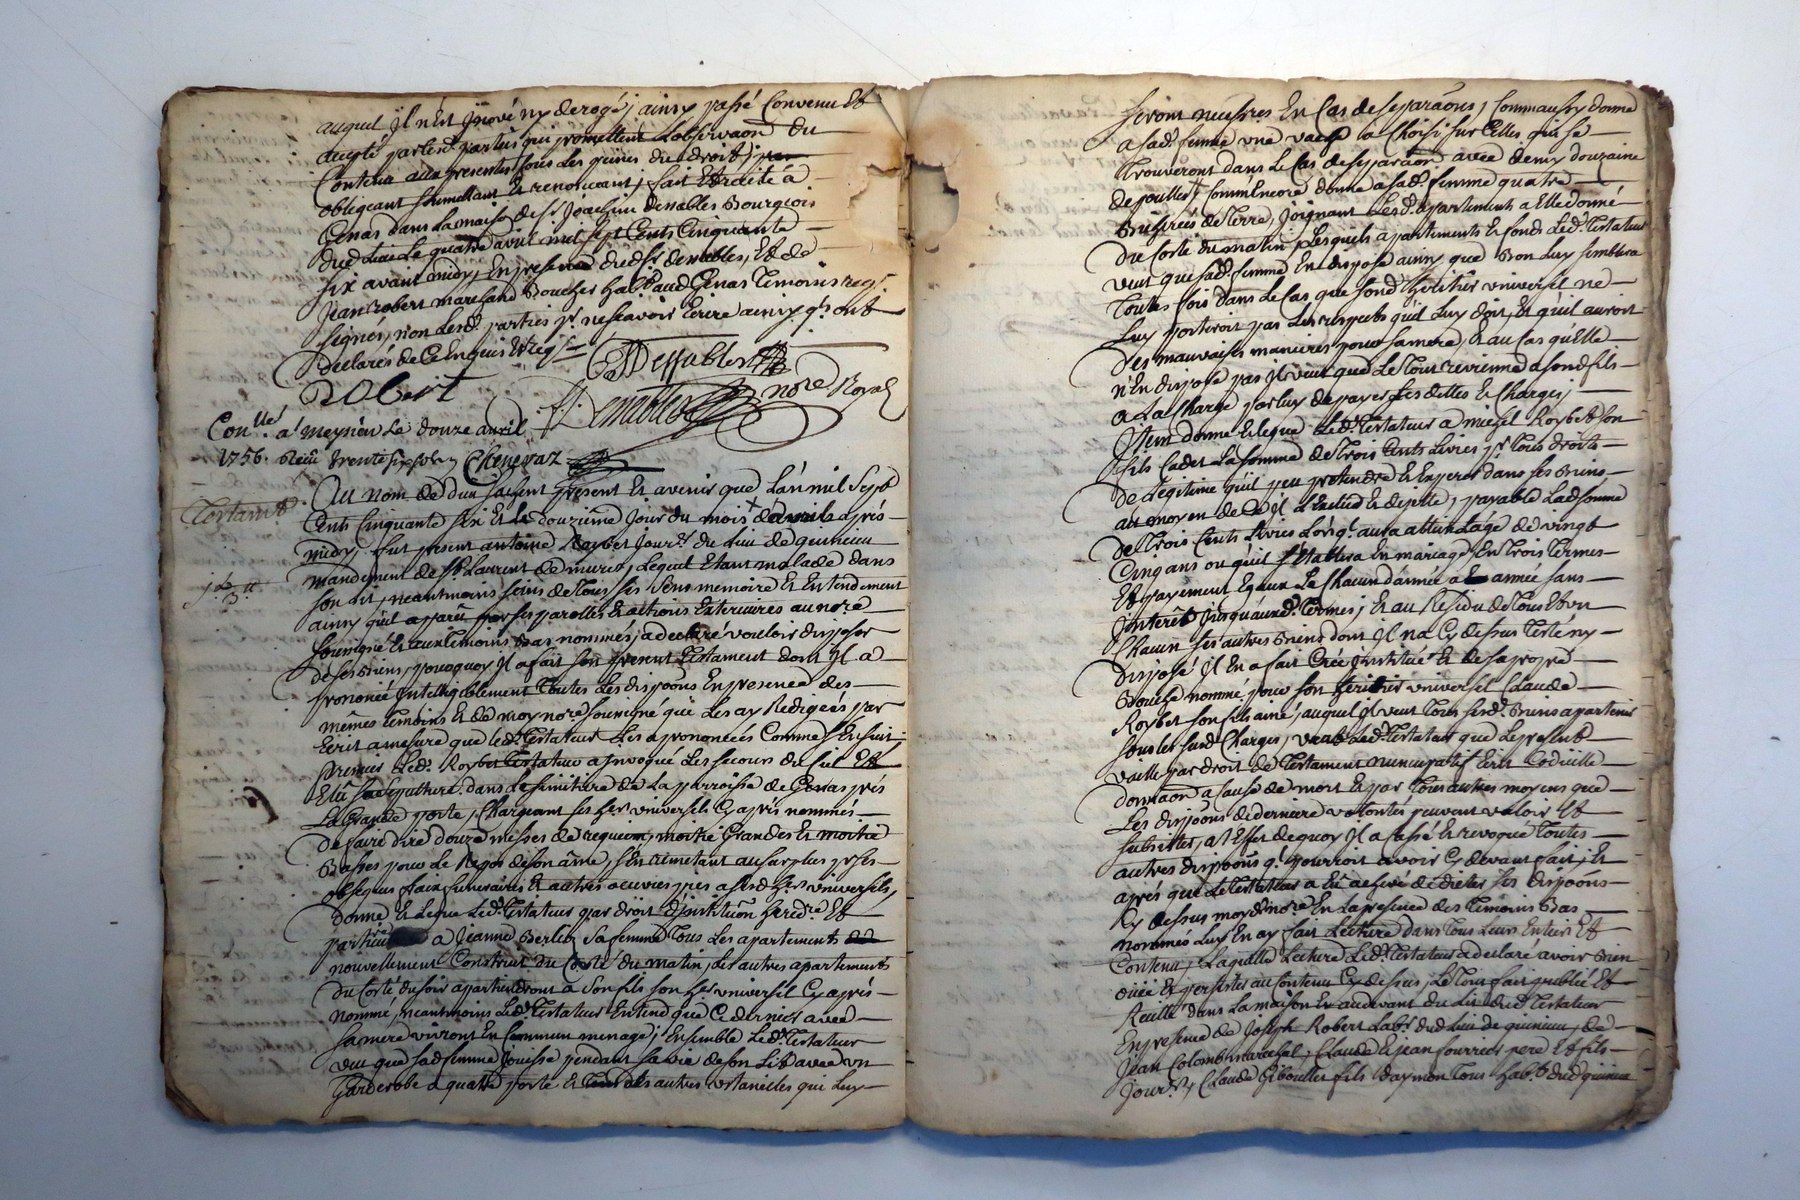 auquel il n'est inové ny derogé, ainsy passé convenu et
accepté par lesd. parties qui promettent l'observaõn du
contenu aux presentes sous les peines du droit, par
obligeant soumettant et renonceant, fait et recité à
Genas dans la maison de sr Joachim Desvables Bourgeois
dud. lieu le quatre avril mil sept cents cinquante
six avant midy, en presence dud. sr, et de
Jean Robert marchand Boucher habt aud. Genas temoins req.
signés, non lesd. parties pr ne sçavoir écrire ainsy qu'ont
declarés de ce enquis et req.
Robert
note Royal
Conllé a Meysieu le douze avril
1756. Reçu trente six sols Chenevaz
Testamt
Au nom de dieu sachent présent et avenir que l'an mil sept
cents cinquante six et le douzième jour du mois d'avril après
midy, fut present antoine Roybet jourr du lieu de
mandement de St Laurent de mures, lequel etant malade dans
son lit, neantmoins seins de tous ses sens memoire et entendement
ainsy qu'il a paru par ses parolles et actions exterieures au nore
soussigné et aux temoins bas nommés, a declaré vouloir disposer
de ses biens, pourquoy il a fait son present testament dont il a
prononcé intelligiblement toutes les dispoõns en presence des
mêmes temoins et de moy nore soussigné qui les ay redigées par
écrit a mesure que led. testateur les a prononcées comme s'ensuit
premier led. Roybet testateur a invoqué les secours du ciel et
Elû sa sepulture dans le simitiere de la parroisse de Genas près
la grande porte, chargeant ses hers universels cy après nommés
de faire dire douze messes de requiem, moitié grandes et moitié
basses pour le repos de son âme, s'en remetant au surplus pr ses
obseques frais funeraires et autres œuvres pies a sesd. hers universels,
donne et legue led. testateur par droit d'instituõn heredre et
particu a Jeanne Berlet sa femme tous les apartements
nouvellement construit du costé du matin, les autres apartements
du costé du soir apartiendront a son fils son her universel cy après
nommé, neantmoins led. testateur entend que ce dernier avec
sa mere vivront en commun menage, ensemble led. testateur
veut que sad. femme jouisse pendant sa vie de son lit avec un
garderobe a quatre porte et tous les autres ustancilles qui luy
seront necessres en cas de separaõns, comm'aussy donne
a sad. femme une vache a choisir sur celles qui se
trouveront dans le cas de separaõn avec demy douzaine
de poulles, comm'encore donne a sad. femme quatre
bicherées de terre, joignant lesd. apartements a elle donné
du costé du matin, lesquels apartements et fonds led. testateur
veut que sad. femme en dispose ainsy que bon luy semblera
toutes fois dans le cas que sond. heritier universel ne
luy porteroit pas les respects qu'il luy doit, et qu'il auroit
des mauvaises manieres pour sa mere, et au cas qu'elle
n'en dispose pas il veut que le tout revienne a son fils
a la charge par luy de payer ses dettes et charges;
Item donne et legue led. testateur a michel Roybet son
fils cadet la somme de trois cents livres pr tous droits
de legitime qu'il peu pretendre et esperer dans ses biens
au moyen de ce il l'exclud et dejette, payable lad. somme
de trois cents livres lorsq. aura atteint l'age de vingt
cinq ans ou qu'il s'etablira en mariage, en trois termes
et payement egaux le chacun d'année a année sans
interêt jusqu'auxd. termes; et au residu de tous et un
chacun ses autres biens dont il n'a cy dessus testé ny
disposé il en a fait créé institué et de sa propre
bouche nommé pour son heritier universel Claude
Roybet son fils ainé, auquel il veut tous sesd. biens apartenir
sous les susd. charges, veut led. testateur que le present
vaille par droit de testament nuncupatif ecrit codicille
donnaõn a cause de mort et par tous autres moyens que
les dispoõns de derniere volontés peuvent valoir et
subsister, a l'effet de quoy il a cassé et revoqué toutes
autres dispoõns q. pourroit avoir cy devant fait; et
après que le testateur a eû achevé de dicter ses dispoõns
cy dessus moyd. nore en la presence des temoins bas
nommés luy en ay fait lecture dans tous leurs entiers et
contenu, laquelle lecture led. testateur a declaré avoir bien
ouïe et persister au contenu cy dessus, le tout fait publié et
recité dans la maison et au devant du lit dud. testateur
en presence de Joseph Robert labr dud. lieu de quinieu, de
Jean Colomb marechal, Claude et jean fourrier pere et fils
jourrs, Claude Giboulet fils d'aymon tous habts dud. quinieu